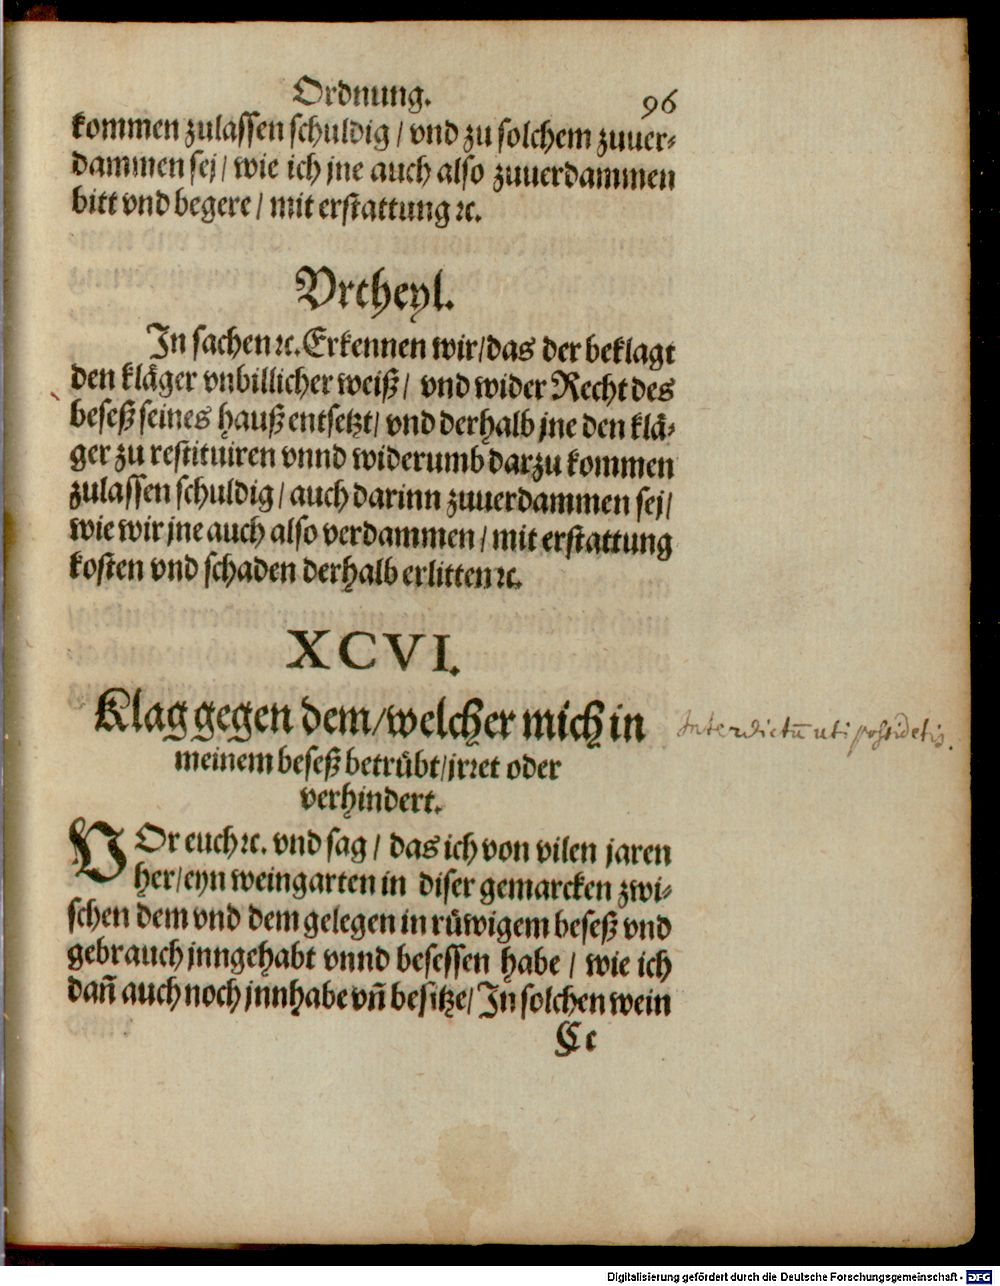 Ordnung. 96
kommen zulassen schuldig / vnd zu solchem zuuer-
dammen sej / wie ich jne auch also zuuerdammen
bitt vnd begere / mit erstattung ꝛc.
Vrtheyl.
In sachen ꝛc. Erkennen wir / das der beklagt
den kläger vnbillicher weiß / vnd wider Recht des
beseß seines hauß entsetzt / vnd derhalb jne den klä-
ger zu restituiren vnnd widerumb darzu kommen
zulassen schuldig / auch darinn zuuerdammen sej /
wie wir jne auch also verdammen / mit erstattung
kosten vnd schaden derhalb erlitten ꝛc.
XCVI.
Klag gegen dem / welcher mich in
meinem beseß betrübt / jrret oder
verhindert.
Interdictū uti possidetis.
VOr euch ꝛc. vnd sag / das ich von vilen jaren
her / eyn weingarten in diser gemarcken zwi-
schen dem vnd dem gelegen in rüwigem beseß vnd
gebrauch jnngehabt vnnd besessen habe / wie ich
dañ auch noch jnnhabe vñ besitze / In solchen wein
Cc
Digitalisierung gefördert durch die Deutsche Forschungsgemeinschaft - DFG